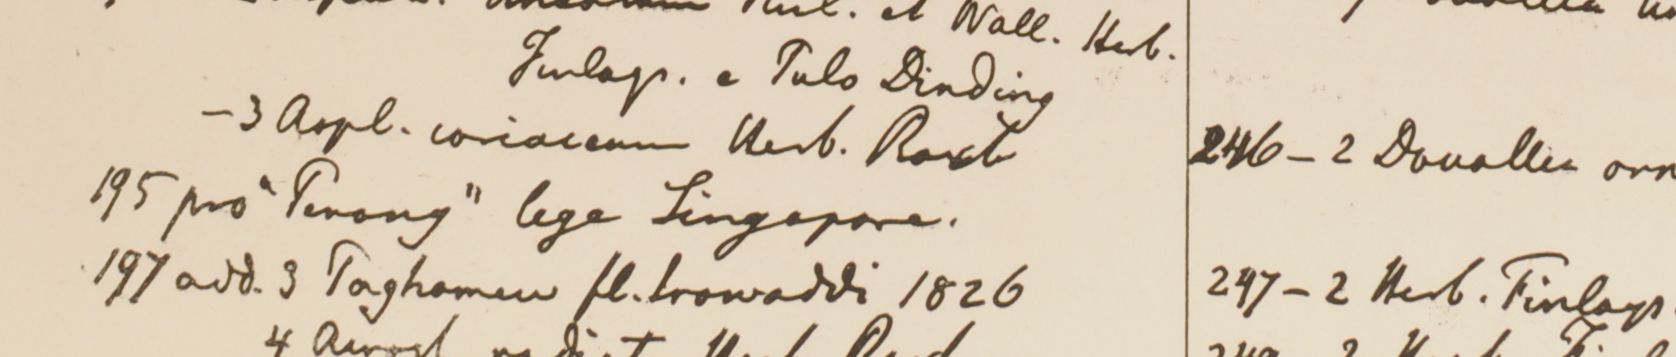 et Wall. Herb.
Finlays. e Pulo Dinding
-3 Aspl. coriaceum Herb. Roxb
195 pro "Penang" lege Singapore.
197 add. 3 Taghamew fl. Irawaddi 1826
4
Herb.
246-2 Davallia orn
247-2 Herb. Finlays.